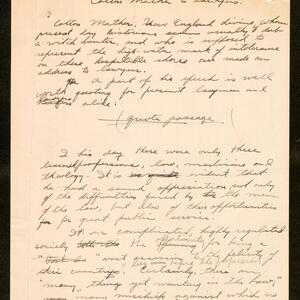 Cotton Mather & Lawyers.
Cotton Mather, New England divine, whom
present day historians seldom usually dub
a witch hunter, and who is supposed to
represent the high-water mark of intolerance
on these hospitable shores once made an
address to lawyers.
A part of his speech is well
worth quoting for present laymen and
lawyers alike:
(quote passage.)
In his day there were only three
learned professions, law, medicine and
theology. It is evident that
he had a sound appreciation not only
of the difficulties faced by the men
of the law, but also of their opportunities
for great public service.
In our complicated, highly regulated
society the opportunity for being a
in the
their countries. Certainly, there are
"many things yet wanting in the law,"
many mischiefs against which no